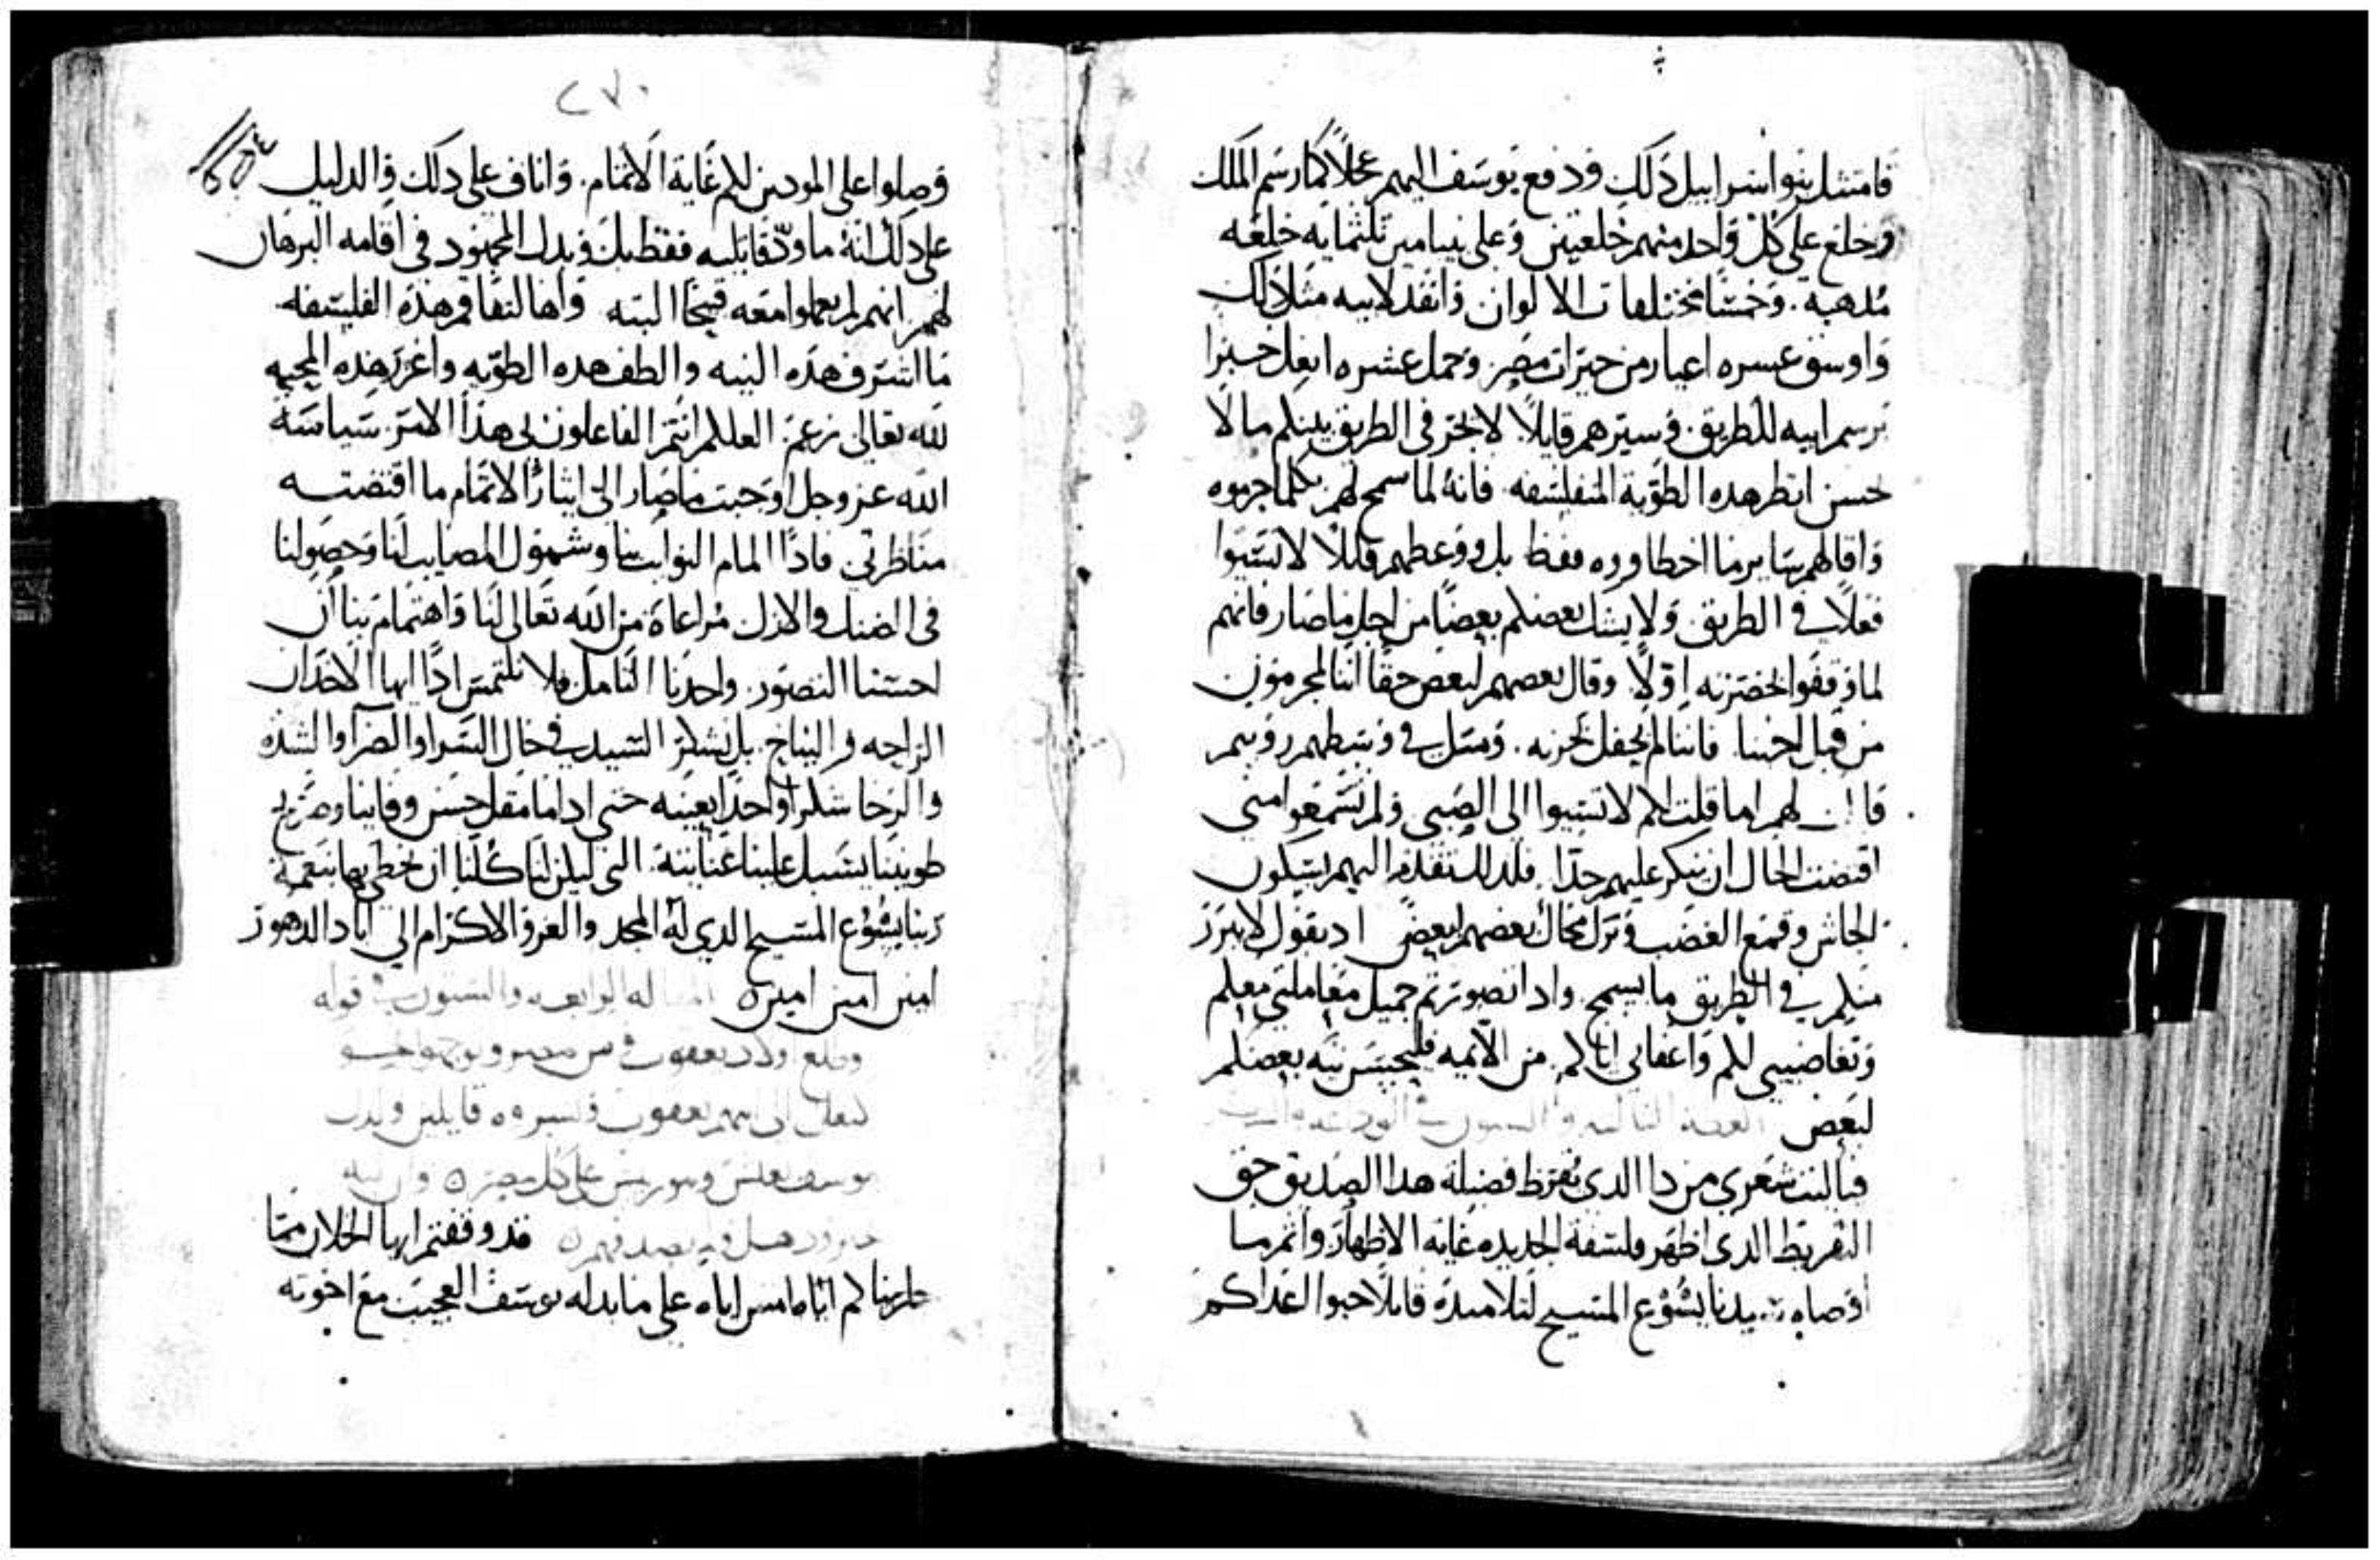 فامتثل بنوا اسرابيل ذلك ودفع يوسف اليهم عجلاً كما رسم الملك
وخلع على كل واحد منهم خلعتين وعلى بنيامين ثلثمايه خلعه
مذهبة. وخمسًا مختلفات الالوان وانفد لابيه مثل ذلك
واوسق عسره اعيار من خيرات مصر وحمل عشره ابغل خبزا
برسم ابيه للطريق. وسيرهم قايلاً. لا يجر فى الطريق بينكم ما لا
حسن انظر هده الطوية المتفلسفه. فانه لما سمح لهم بكلما جرموه
واقالهم بساير ما اخطاوه فقط بل ووعظهم قايلاً لا تسيوا
فعلاً في الطريق ولا يسك بعضكم بعضًا من اجل ما صار فانهم
لما وقفوا بحضرته اولاً. وقال بعضهم لبعض حقًا اننا لمجرمون
من قبل اخينا. فاننا لم نحفل بحزنه. ومثل في وسطهم روبيم
قال لهم اما قلت لكم لا تسيوا الى الصبى ولم تسمعوا منى
اقتضت الحال ان ينكر عليهم جدًا. فلدلك تقدم اليهم بسكون
الجاش وقمع الغضب وترك محاك بعضهم لبعض اد يقول لا يبرز
منكم في الطريق ما يسمج. واد انصورتم جميل معاملتي معكم
وتغاضيي لكم واعفاى اياكم. من الايمه فليحسن نيه بعضكم
لبعض
فيا ليت شعرى من دا الدى يقرظ فضيلة هدا الصديق حق
التقريظ الدى اظهر فلسفة الجديده غاية الاظهار. واتم ما
اوصا به سيدنا يشوع المسيح لتلاميده قايلاً حبوا اعداكم
٢٧٠
وصلوا على المودين لكم غاية الاتمام. واناف على دلك والدليل
على دلك انه ما ودّ قاتليه فقط بل وبدل المجهود فى اقامه البرهان
لهم انهم لم يعملوا معه قبيحًا البته واها لتفاقم هذه الفلسفه
ما اشرف هذه النيه والطف هده الطويه واغزر هده المحبه
لله تعالى زعم. العلكم انتم الفاعلون لى هدا الامر. سياسة
الله عز وجل اوجبت ما صار الى ايثار الاتمام ما اقتضته
مناظرتي. فادًا المام النوايب بنا وشمول المصايب لنا وحصولنا
فى الضنك والازل مراعاة من الله تعالى لنا واهتمام بنا ان
احسنا التصور. واجدنا التامل فلا نلتمس ادًا ايها الاخدان
الراحه والنياح. بل نشكر السيد فى حال السرا والضرآ والشده
والرخا شكرًا واحدًا بعينه حتى
طويتنا يسبل علينا عنايته. التى ليكن لنا كلنا ان نحظى بها بنعمة
ربنا يشوع المسيح الدى له المجد والعز والاكرام الى اباد الدهور
امين امين امين المقاله الرابعه والستون في قوله
قد وقفتم ايها الخلان مما
خاطبناكم اياه امس اياه على ما بدله يوسف العجيب مع اخوته